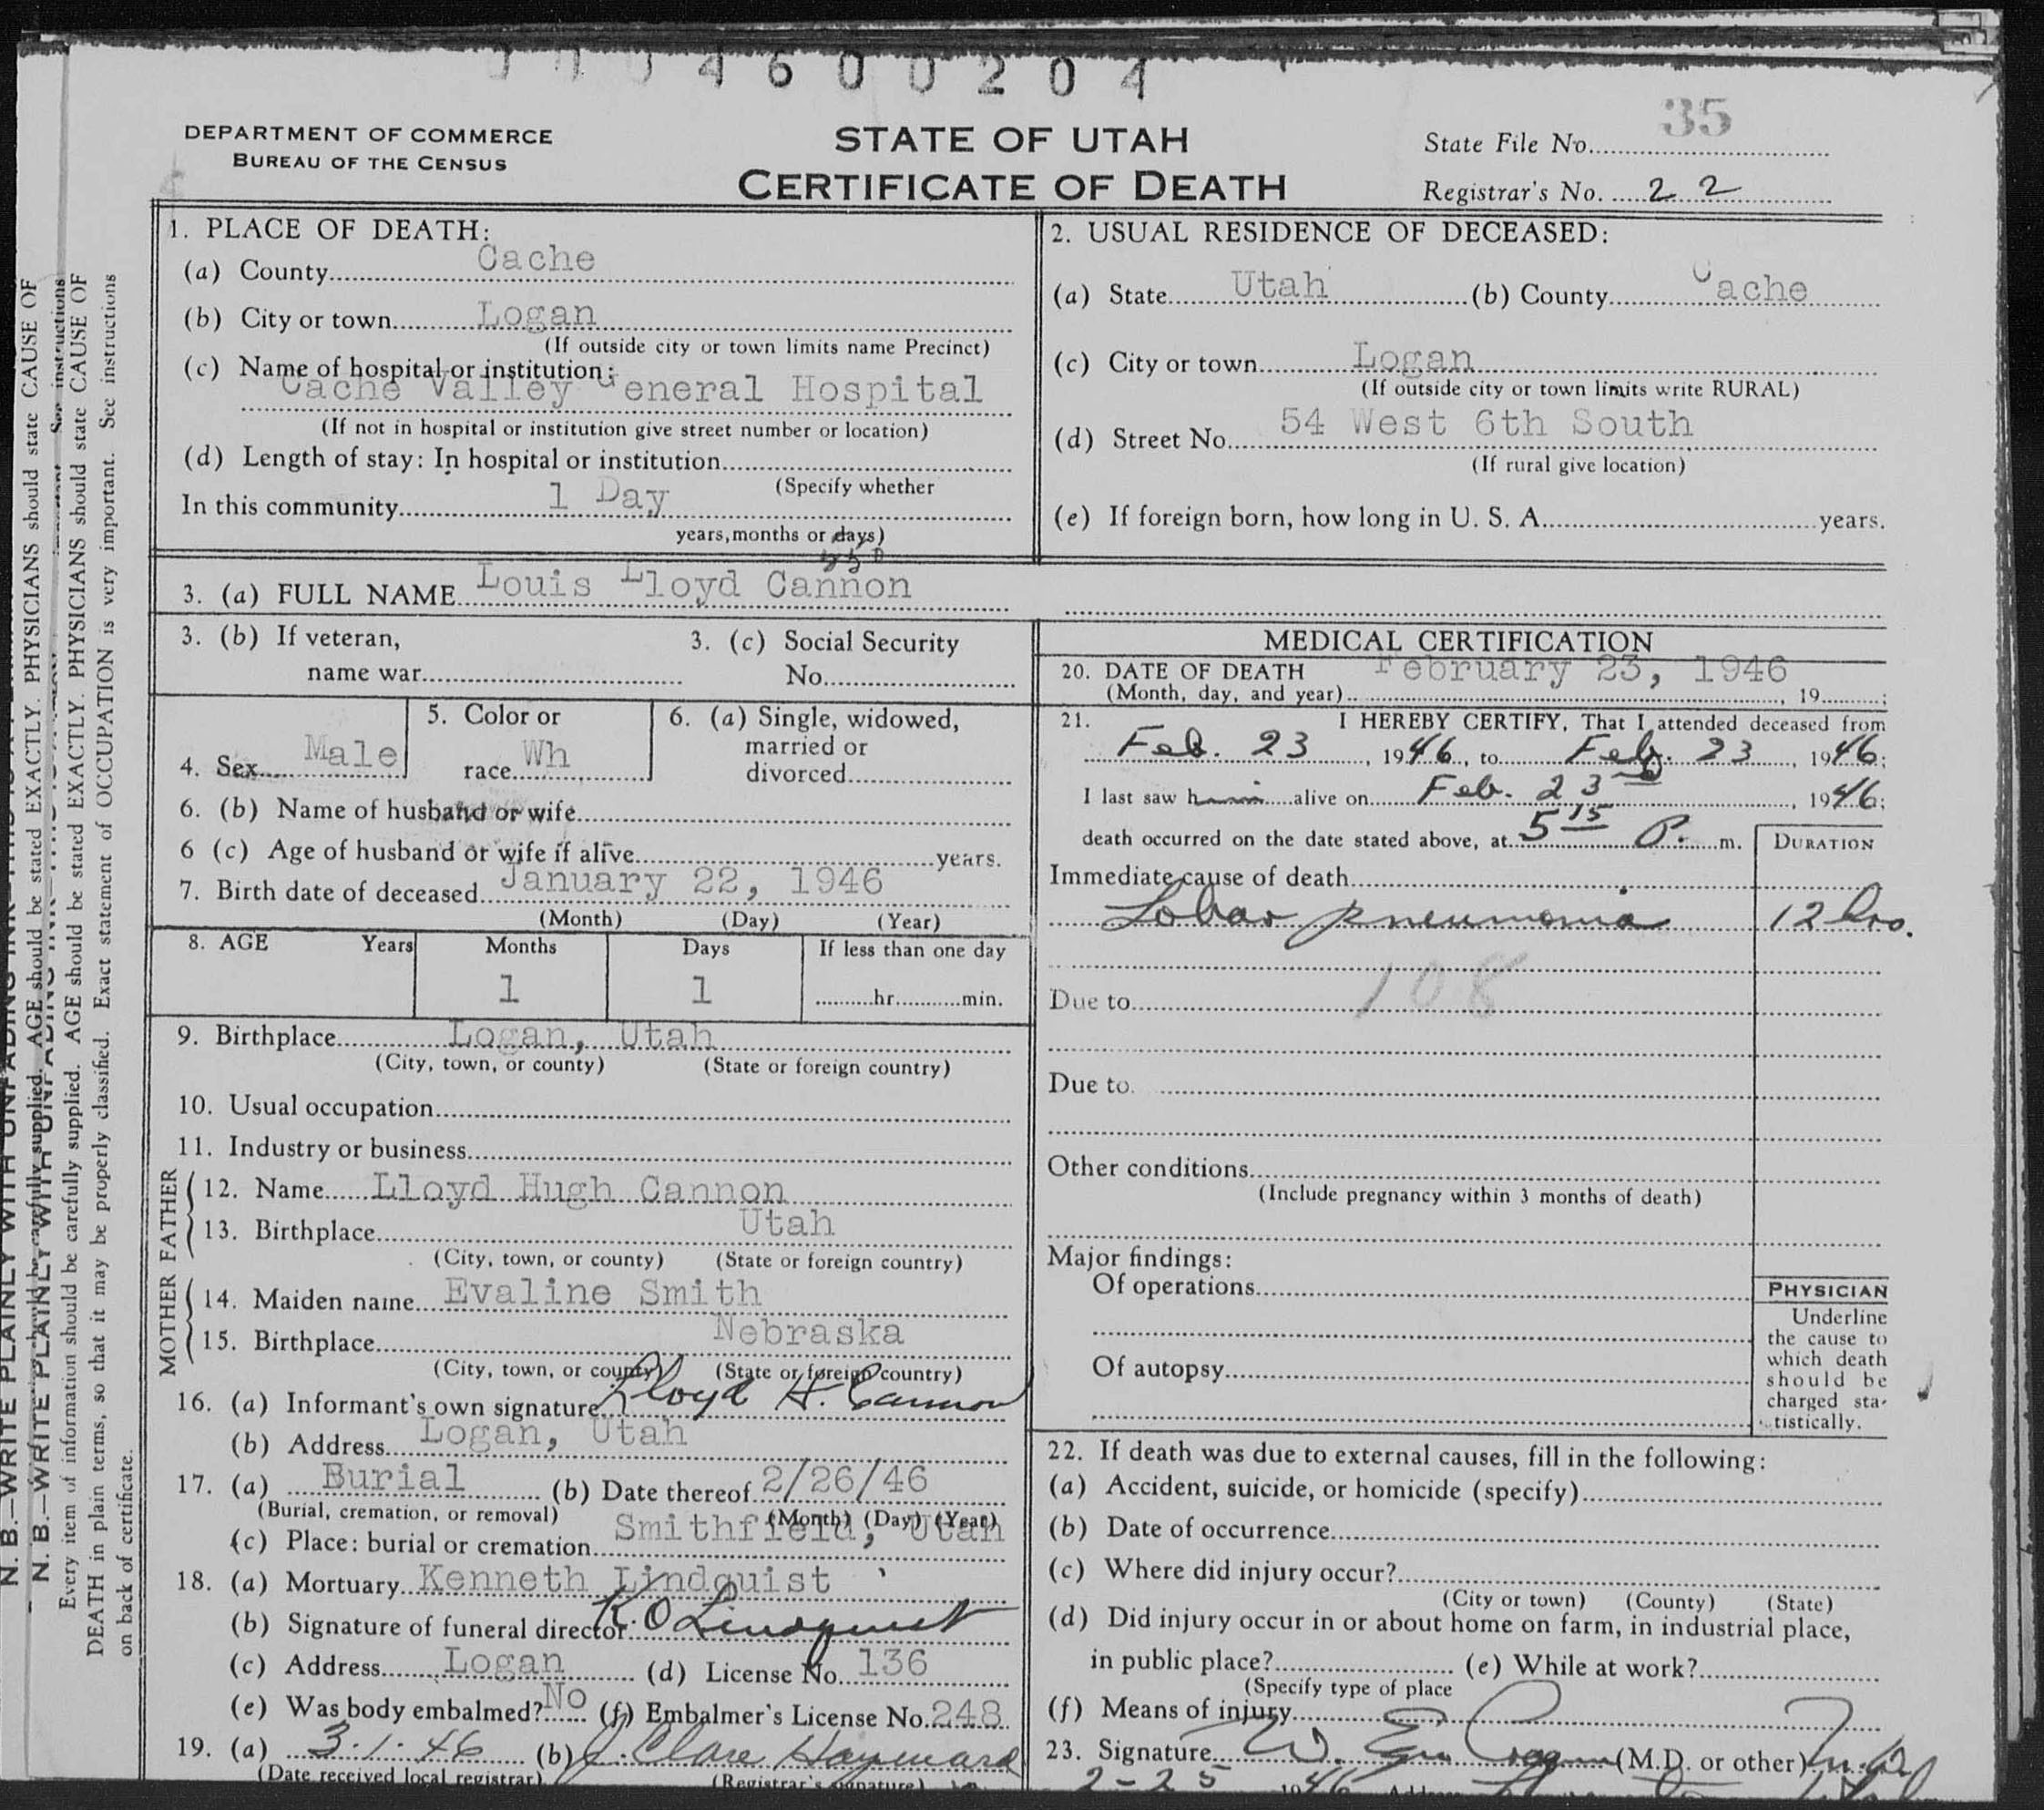 4 6 0 0 2 0 4
DEPARTMENT OF COMMERCE
BUREAU OF THE CENSUS
STATE OF UTAH
CERTIFICATE OF DEATH
State File No. 35
Registrar's No. 22
1. PLACE OF DEATH:
(a) County Cache
(b) City or town Logan
(If outside city or town limits name Precinct)
(c) Name of hospital or institution:
Cache Valley General Hospital
(If not in hospital or institution give street number or location)
(d) Length of stay: In hospital or institution
(Specify whether
In this community 1 Day
years, months or days)
2. USUAL RESIDENCE OF DECEASED:
(a) State Utah (b) County Cache
(c) City or town Logan
(If outside city or town limits write RURAL)
(d) Street No. 54 West 6th South
(If rural give location)
(e) If foreign born, how long in U. S. A. years.
3. (a) FULL NAME Louis Lloyd Cannon
3. (b) If veteran,
name war
3. (c) Social Security
No.
4. Sex Male
5. Color or
race Wh
6. (a) Single, widowed,
married or
divorced
6. (b) Name of husband or wife
6 (c) Age of husband or wife if alive years.
7. Birth date of deceased January 22, 1946
(Month) (Day) (Year)
8. AGE Years Months Days If less than one day
1 1 hr. min.
9. Birthplace Logan, Utah
(City, town, or county) (State or foreign country)
10. Usual occupation
11. Industry or business
FATHER
12. Name Lloyd Hugh Cannon
13. Birthplace Utah
(City, town, or county) (State or foreign country)
MOTHER
14. Maiden name Evaline Smith
15. Birthplace Nebraska
(City, town, or county) (State or foreign country)
16. (a) Informant's own signature Lloyd H. Cannon
(b) Address Logan, Utah
17. (a) Burial (b) Date thereof 2/26/46
(Burial, cremation, or removal) (Month) (Day) (Year)
(c) Place: burial or cremation Smithfield, Utah
18. (a) Mortuary Kenneth Lindquist
(b) Signature of funeral director K. O Lindquist
(c) Address Logan (d) License No. 136
(e) Was body embalmed? No (f) Embalmer's License No. 248
19. (a) 3.1.46 (b) J. Clare Hayward
(Date received local registrar) (Registrar's signature)
MEDICAL CERTIFICATION
20. DATE OF DEATH February 23, 1946
(Month, day, and year) , 19 ;
21. I HEREBY CERTIFY, That I attended deceased from
Feb. 23 , 1946, to Feb. 23 , 1946;
I last saw him alive on Feb. 23 , 1946;
death occurred on the date stated above, at 5 15 P. m.
DURATION
Immediate cause of death
Lobar pneumonia 12 hrs.
108
Due to
Due to
Other conditions
(Include pregnancy within 3 months of death)
Major findings:
Of operations
Of autopsy
PHYSICIAN
Underline
the cause to
which death
should be
charged sta-
tistically.
22. If death was due to external causes, fill in the following:
(a) Accident, suicide, or homicide (specify)
(b) Date of occurrence
(c) Where did injury occur?
(City or town) (County) (State)
(d) Did injury occur in or about home on farm, in industrial place,
in public place? (e) While at work?
(Specify type of place
(f) Means of injury
23. Signature W. (M.D. or other) M.D.
2-25 1946
N. B.—WRITE PLAINLY WITH UNFADING INK
Every item of information should be carefully supplied. AGE should be stated EXACTLY. PHYSICIANS should state CAUSE OF
DEATH in plain terms, so that it may be properly classified. Exact statement of OCCUPATION is very important. See instructions
on back of certificate.